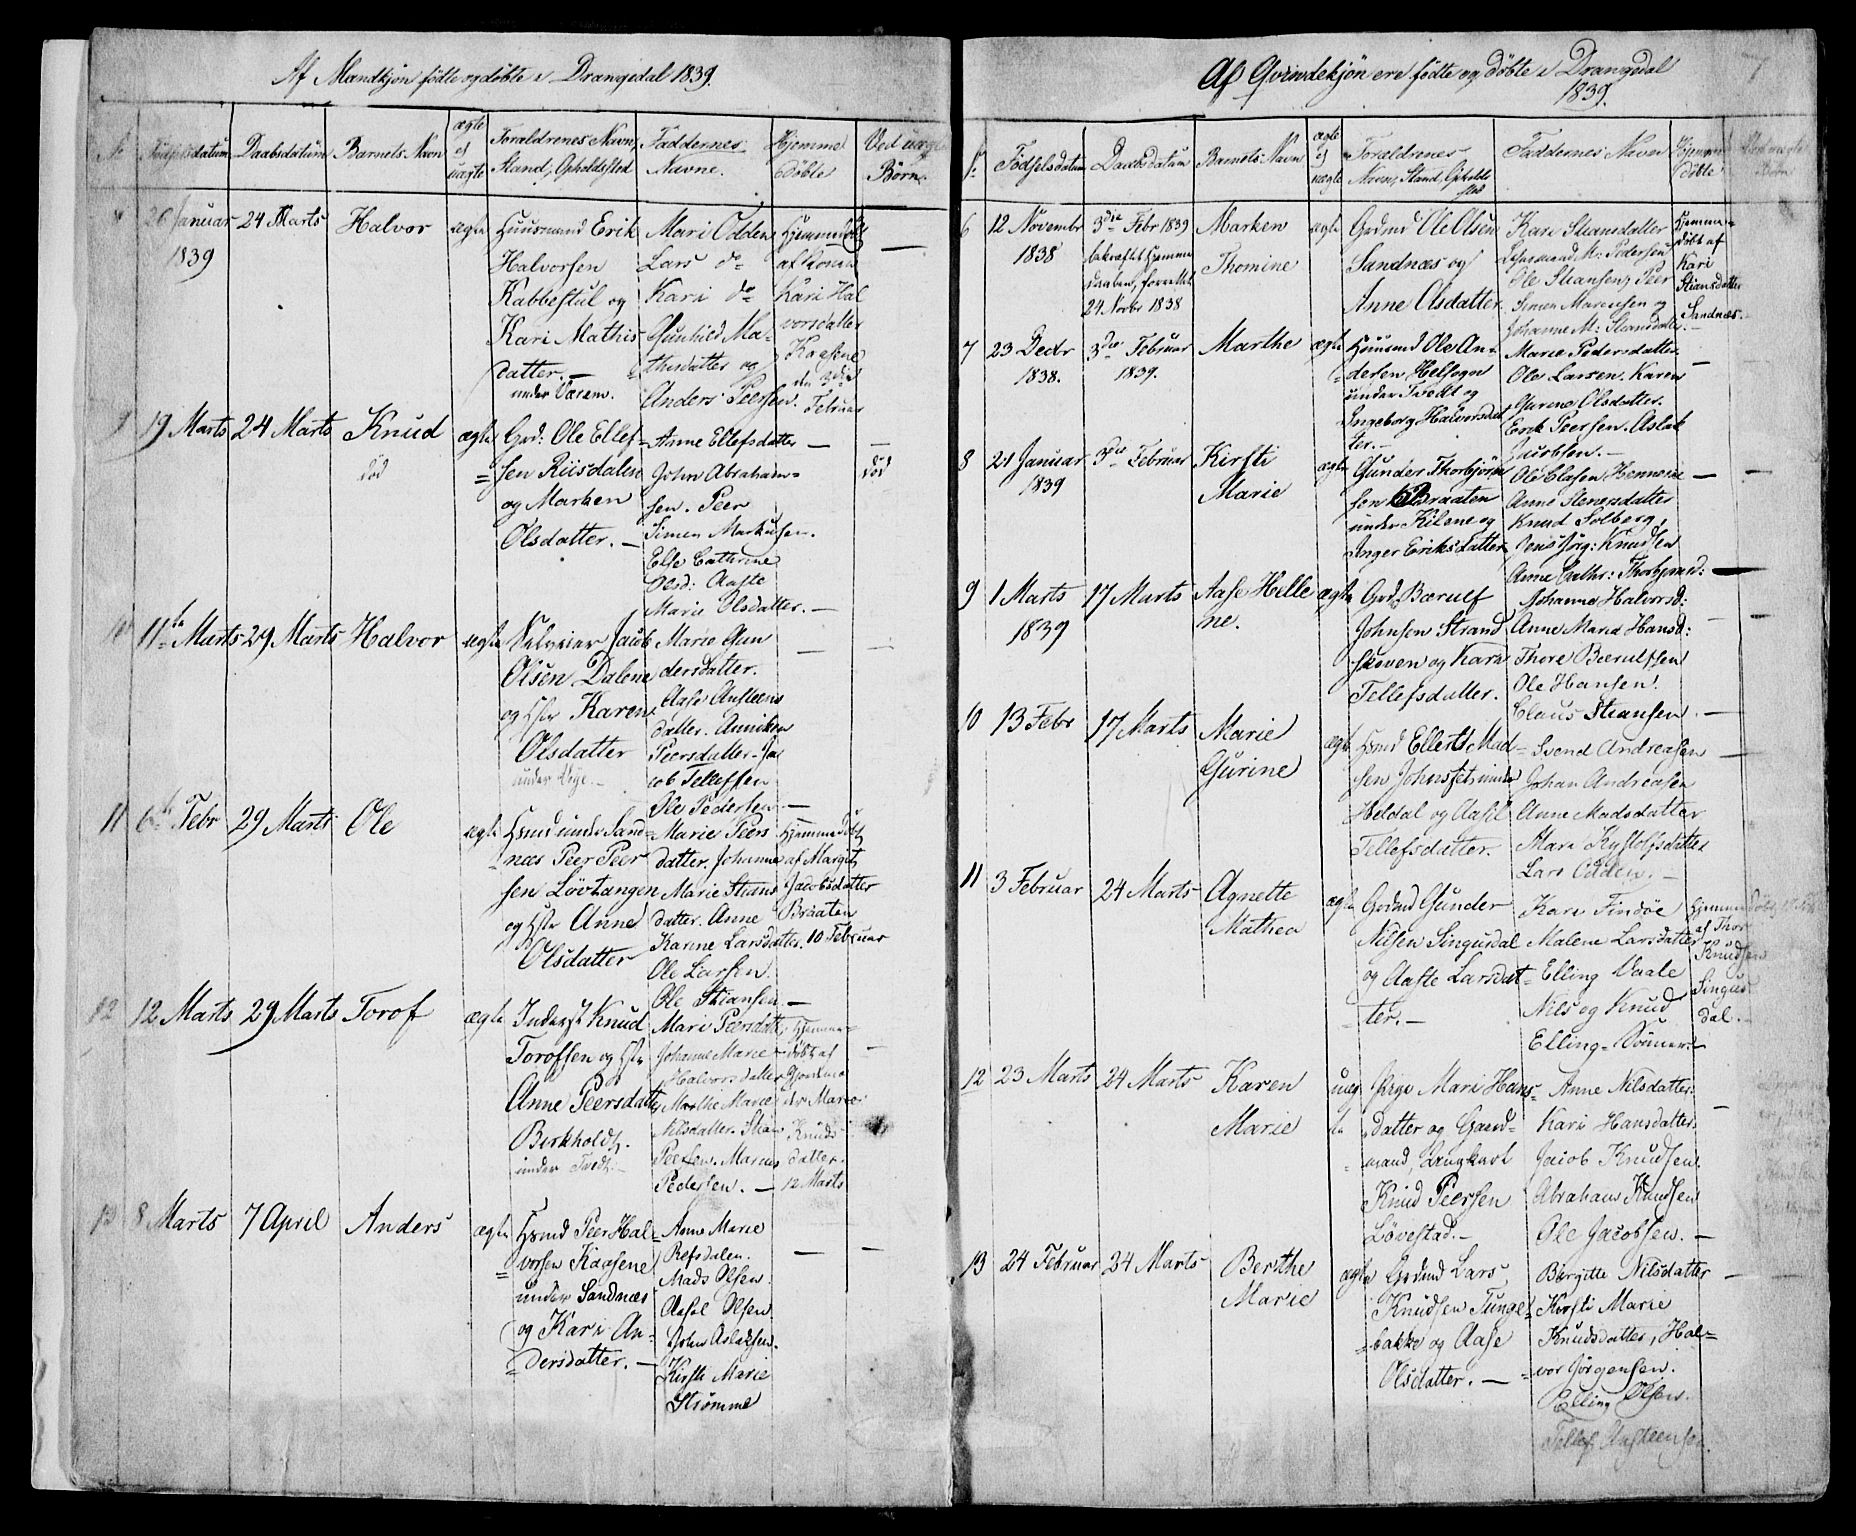 Af Mandkjøn fødte og døbte i Drangedal 1839.
No Fødselsdatum Daabsdatum Barnets Navn ægte el uægte Foraldrenes Navn, Stand, Opholdssted Faddernes Navne. Hjemme Døbte Ved uægte Børn.
26 Januar 1839
24 Marts
Halvor
ægte
Huusmand Erik
Halvorsen
Kabbestul og
Kari Mathis
datter. —
under Væsem.
Mari Odden
Lars do
Kari do
Gunhild Ma-
thisdatter og
Anders Peersen.
Hjemmedøbt
af Konen
Kari Hal
vorsdatter
Kaasene
den 3die
Februar
—
9
19 Marts
24 Marts
Knud
død
ægte
Grd: Ole Ellef
sen Riisdalen
og Marken
Olsdatter. —
Anne Ellefsdatter
John Abraham=
sen. Peer
Simen Markusen.
Else Cathrine
Olsd: Aaste
Marie Olsdatter. —
—
død
10
11te Marts
29 Marts
Halvor
ægte
Selveier Jacob
Olsen Dalene
og Hstr Karen
Olsdatter
under Vøje. —
Marie Gun
dersdatter.
Aase Austeens
datter. Anniken
Peersdatter. Ja
cob Tellefsen
Ole Pedersen —
—
—
11
6te Febr
29 Marts
Ole
ægte
Hsmd under Sand=
næs Peer Peer
sen Løvtangen
og Hstr Anne
Olsdatter
Marie Peers
datter. Johanne
Marie Stians
datter. Anne
Karine Larsdatter.
Ole Larsen.
Ole Stiansen —
Hjemmedøbt
af Margit
Jacobsdatter
Braaten
10 Februar
12
12 Marts
29 Marts
Torof
ægte
Inderst Knud
Torofsen og Hstr
Anne Peersdatter
Berkholdt.
under Tvedt. —
Mari Peersdatter
Johanne Marie
Halvorsdatter
Marthe Marie
Nilsdatter. Stian
Peersen. Marcus
Pedersen. —
Hjemme-
døbt af
Gjordemo
der Maren
Knuds-
datter.
12 Marts
—
13
8 Marts
7 April
Anders
ægte
Hsmd Peer Hal=
vorsen Kaasene
under Sandnæs
og Kari An=
dersdatter. —
Anne Marie
Refsdalen.
Mads Olsen.
Aasol Olsen
John Aslaksen.
Kirsti Marie
Strømme
—
—
Af Qvindekjøn ere fødte og døbte i Drangedal
1839.
7
No Fødselsdatum Daabsdatum Barnets Navn ægte el uægte Foraldrenes Navn, Stand, Opholdssted Faddernes Navn Hjemme døbte Ved uægte Børn
6
12 Novembr
1838
3die Febr 1839
bekræftet Hjemme
daaben, forrettet
24 Novbr 1838
Marken
Thomine
ægte
Grdmd Ole Olsen
Sandnæs og
Anne Olsdatter
Kari Stiansdatter
Lensmand M: Pedersen
Ole Stiansen, Peer
Simen Marcusen og
Johanne M: Stiansdatter. —
Hjemme=
døbt af
Kari
Stiansdatter
Sandnæs. —
7
23 Decbr
1838.
3die Februar
1839.
Marthe
ægte
Huusmd Ole An-
dersen Helsogn
under Tvedt og
Ingeborg Halvorsdat
ter. —
Marie Pedersdatter
Ole Larsen. Karen
Gurine Olsdatter.
Erik Peersen. Aslak
Jacobsen. —
—
8
21 Januar
1839
3die Februar
Kirsti
Marie
ægte
Gunder Thorbjørn
sen Braaten
under Kilene og
Inger Eriksdatter
Ole Clasen Henneseie
Anne Stenersdatter
Knud Solberg,
Jens Jørg: Knudsen
Anne Cathr: Thorbjørnsd:
—
—
9
1 Marts
1839
17 Marts
Aase Helle
ne.
ægte
Grd: Bærulf
Johnsen Strand
skoven og Kari
Tellefsdatter.
Johanne Halvorsd:
Anne Maria Hansd:
Thore Bærulfsen
Ole Hansen.
Claus Stiansen. —
—
10
13 Febr
17 Marts
Marie
Gurine
ægte
Hsmd Ellert Mad=
sen Johnsset under
Heldal og Aasil
Tellefsdatter.
Svend Andreasen
Johan Andreasen
Anne Madsdatter
Mari Kystolfsdatter
Lars Odden. —
—
11
3 Februar
24 Marts
Agnette
Mathea
ægte
Grdmd Gunder
Nilsen Singusdal
og Aaste Larsdat=
ter. —
Kari Findøe
Malene Larsdatter
Elling Vaale
Nils og Knud
Elling=Sønner. —
Hjemmedøbt
af Thor
Knudsen
Singus
dal. —
12
23 Marts
24 Marts
Karen
Marie
uæg
te
Pige Mari Hans=
datter og Gaard=
mand, Ungkarl
Knud Peersen
Løvestad. —
Anne Nilsdatter.
Kari Hansdatter
Jacob Knudsen.
Abraham Knudsen
Ole Jacobsen. —
—
13
24 Februar
24 Marts
Berthe
Marie
ægte
Grdmd Lars
Knudsen Tunge=
bakke og Aase
Olsdatter. —
Birgitte Nilsdatter
Kirsti Marie
Knudsdatter, Hal=
vor Jørgensen.
Elling Olsen.
Tellef Austeensen.
—